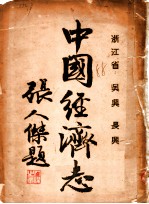 浙江省 吳興 長興
中國經濟志
張人傑題